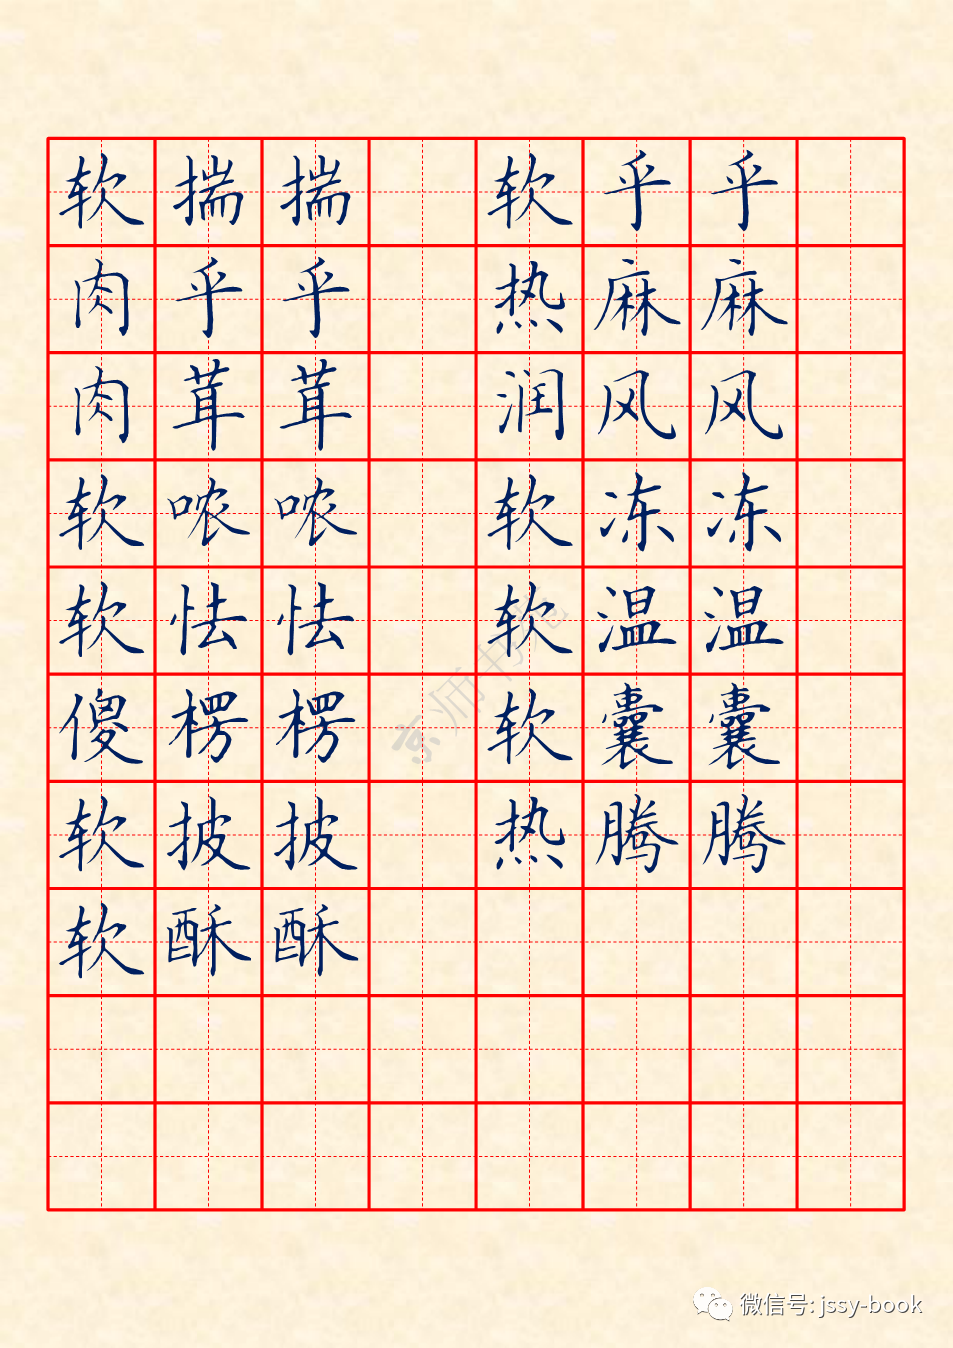 软揣揣 软乎乎
肉乎乎 热麻麻
肉茸茸 润风风
软哝哝 软冻冻
软怯怯 软温温
傻楞楞 软囊囊
软披披 热腾腾
软酥酥
京师书苑
微信号: jssy-book